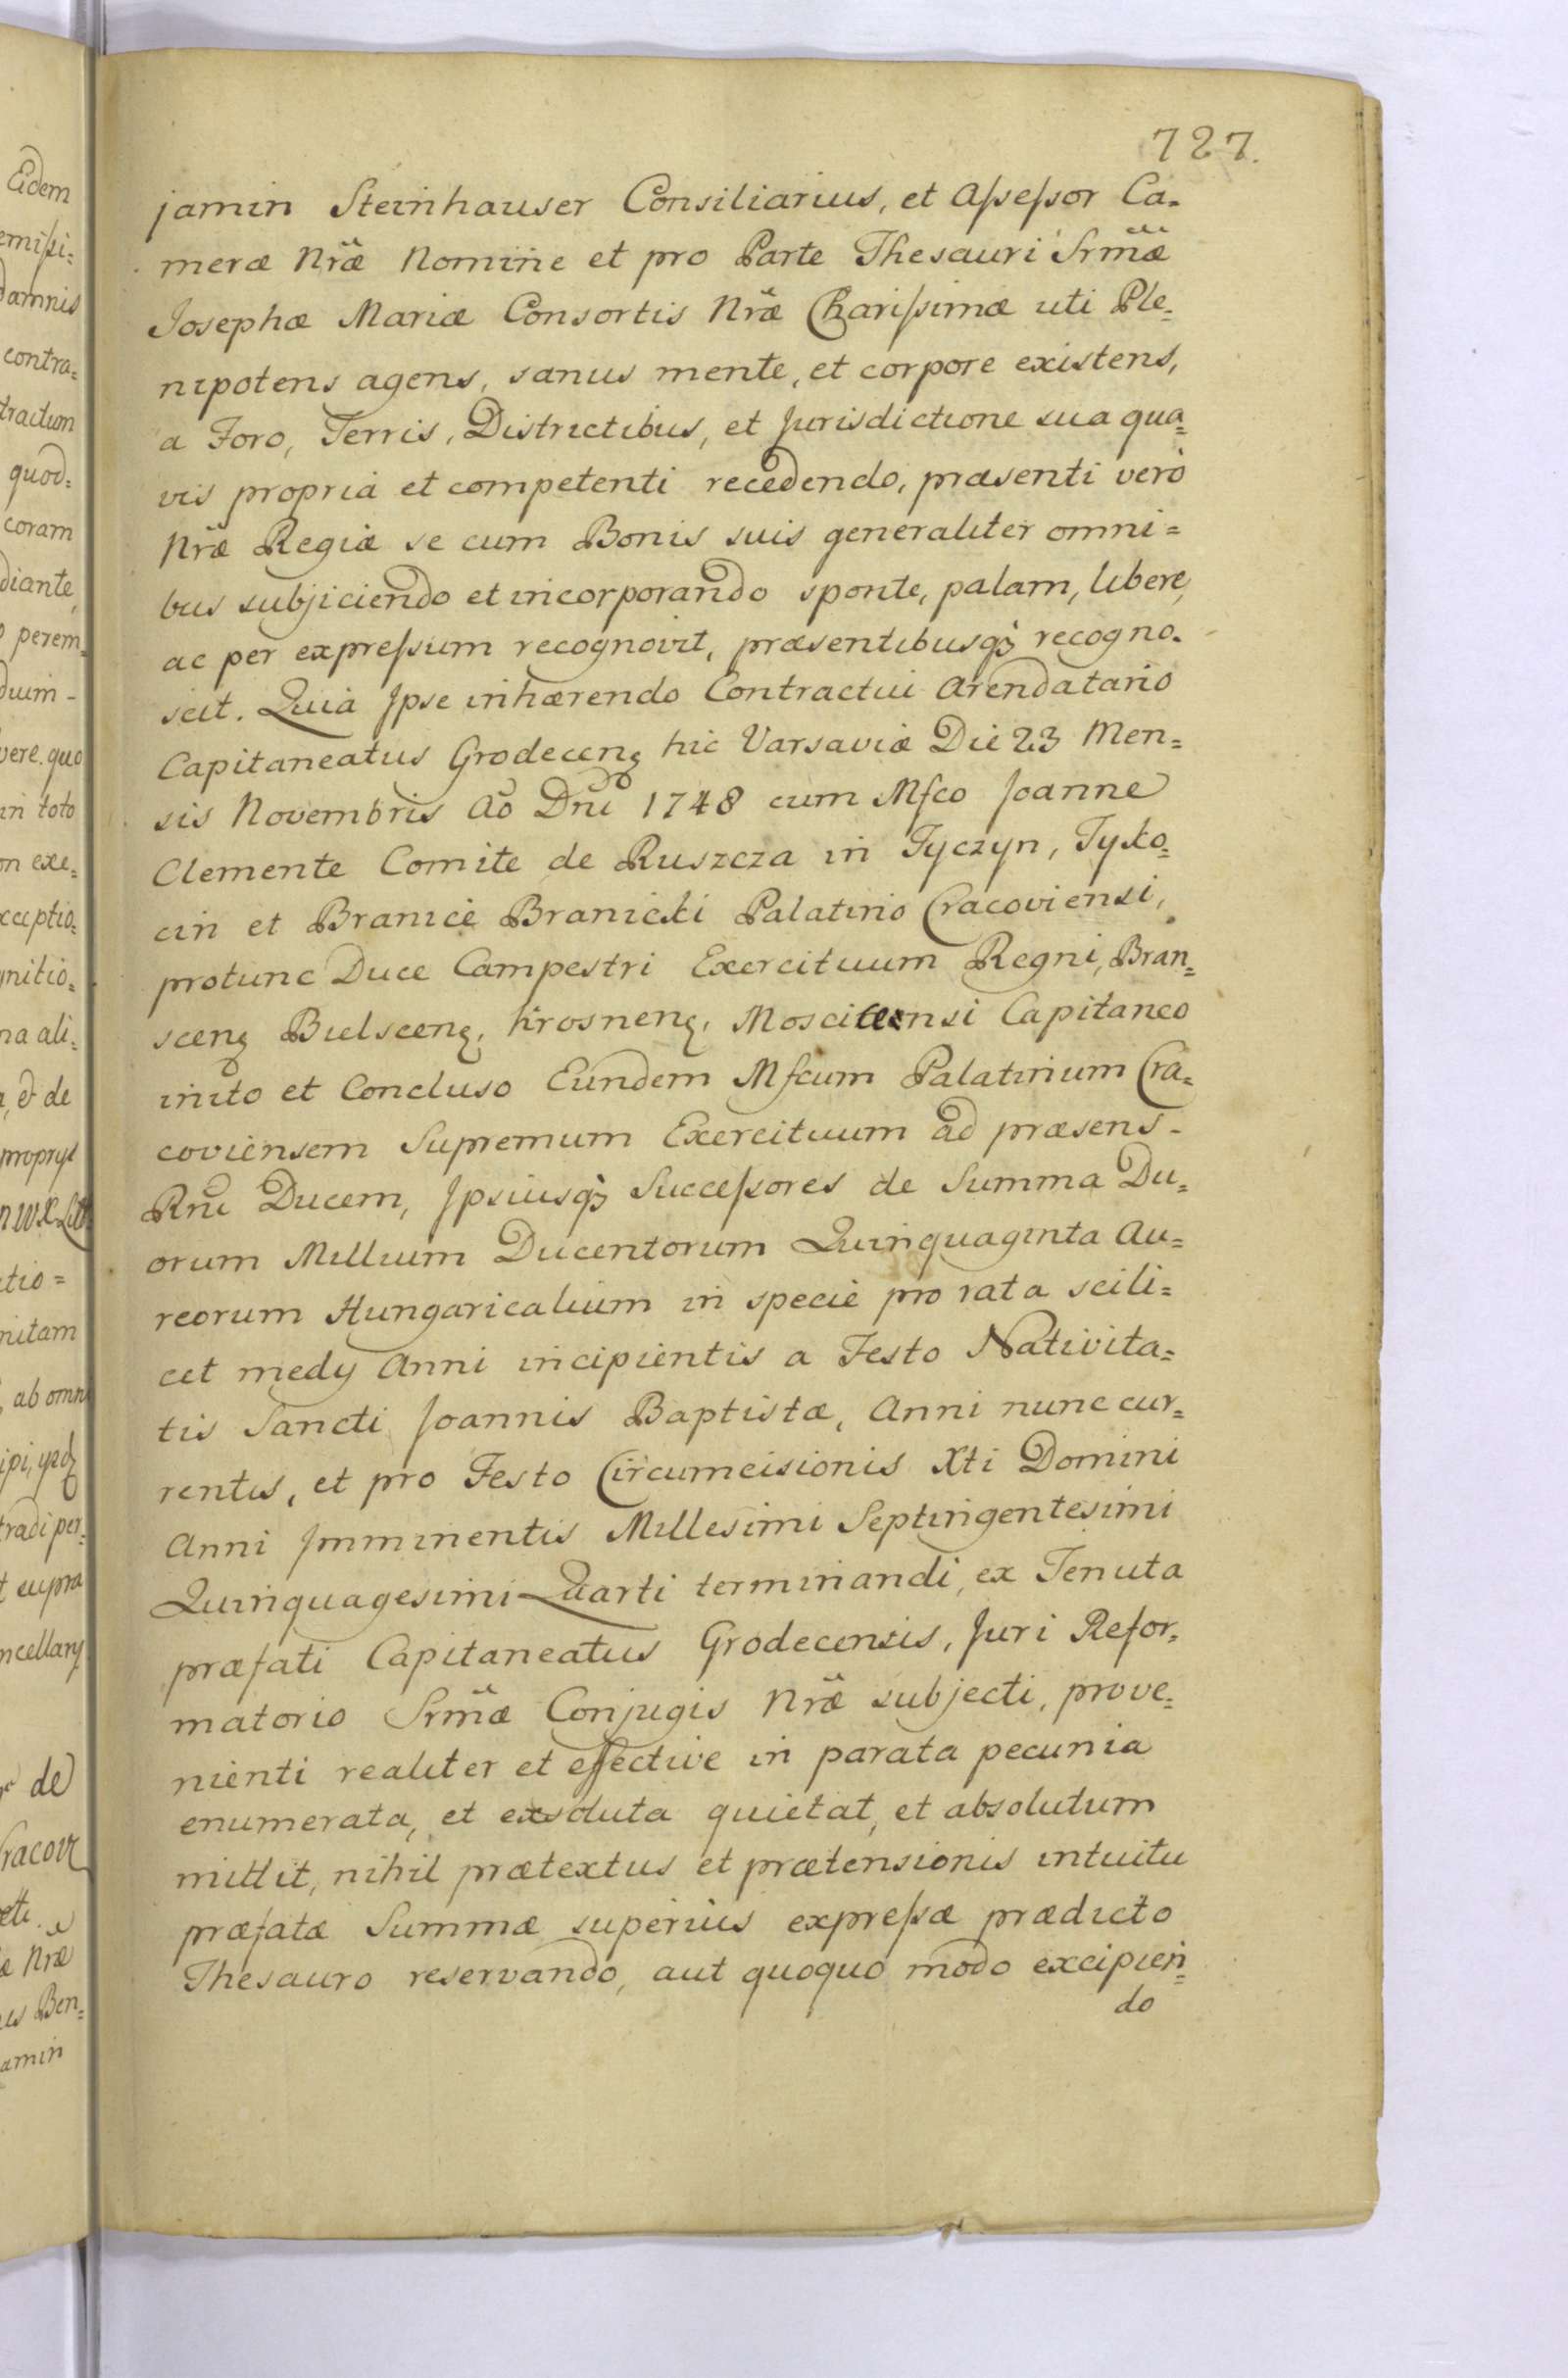 727.
jamin Steinhauser Consiliarius, et Aſseſsor Ca-
meræ Nrae Nomine et pro Parte Thesauri Srmæ
Josephæ Mariæ Consortis Nræ Chariſsimæ uti Ple=
nipotens agens, sanus mente, et corpore existens,
a Foro, Terris, Districtibus, et Jurisdictione sua qua=
vis propria et competenti recedendo, præsenti verò
Nræ Regiæ se cum Bonis suis generaliter omni=
bus subjiciendo et incorporando sponte, palam, libere,
ac per expreſsum recognovit, præsentibusq3 recogno-
scit. Quia Ipse inhærendo Contractui Arendatario
Capitaneatus Grodecens hic Varsaviæ Die 23 Men=
sis Novembris Ao Dni 1748 cum Mfco Joanne
Clemente Comite de Ruszcza in Tyczyn, Tyko=
cin et Branice Branicki Palatino Cracoviensi,
protunc Duce Campestri Exercituum Regni, Bran=
scens Bielscens, Krosnens, Moscicensi Capitaneo
inito et Concluso Eundem Mfcum Palatinum Cra=
coviensem Supremum Exercituum ad præsens-
Rni Ducem, Ipsiusq3 Succeſsores de Summa Du=
orum Millium Ducentorum Quinquaginta Au=
reorum Hungaricalium in specie pro rata scili=
cet medy Anni incipientis a Festo Nativita=
tis Sancti Joannis Baptistæ, Anni nunc cur=
rentis, et pro Festo Circumcisionis Xti Domini
Anni Imminentis Millesimi Septingentesimi
Quinquagesimi Quarti terminandi, ex Tenuta
præfati Capitaneatus Grodecensis, Juri Refor=
matorio Srmæ Conjugis Nræ subjecti, prove=
nienti realiter et effective in parata pecunia
enumerata, et exsoluta quietat, et absolutum
mittit, nihil prætextus et prætensionis intuitu
præfatæ Summæ superius expreſsæ prædicto
Thesauro reservando, aut quoquo modo excipien=
do
Eidem
emiſsi=
damnis
contra=
tractum
quod=
coram
diante,
perem=
duim-
vere. quo
in toto
on exe=
xceptio=
gnitio=
na ali=
& de
proprys
tio=
nitam
ab omni
tradi per=
t supra
ncellary
de
æ Nræ
us Ben=
amin